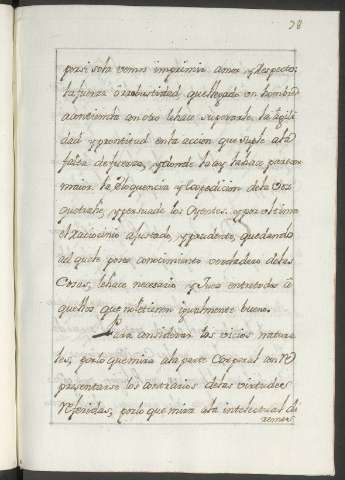 78
por si sola vemos imprimir amor y Respecto:
la fuerza ó robustidad, que llegado un hombre
a contienda con otro le hace superarle, la agili
dad y prontitud en la accion que suple a la
falta de fuerza, y donde la ay la hace parecer
maior. la Eloquencia y Expedicion de la Voz
que trahe, y persuade los Oyentes. y por el ultimo
el Raciocinio ajustado, y prudente, quedando
aquel que pone conocimiento verdadero de las
Cosas, le hace necesario y Juez entre todos a
quellos que no le tienen igualmente bueno.
Para considerar los vicios natura
les, por lo que mira a la parte Corporal con Re
presentarse los contrarios de las virtudes
Referidas, por lo que mira a la intelectual di
remos,